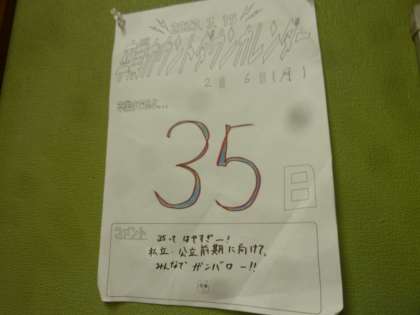 カウントダウンカレンダー
2月 6日(月)
35日
コメント
35って はやすぎー!
私立・公立前期に向けて、
みんなで ガンバロー!!